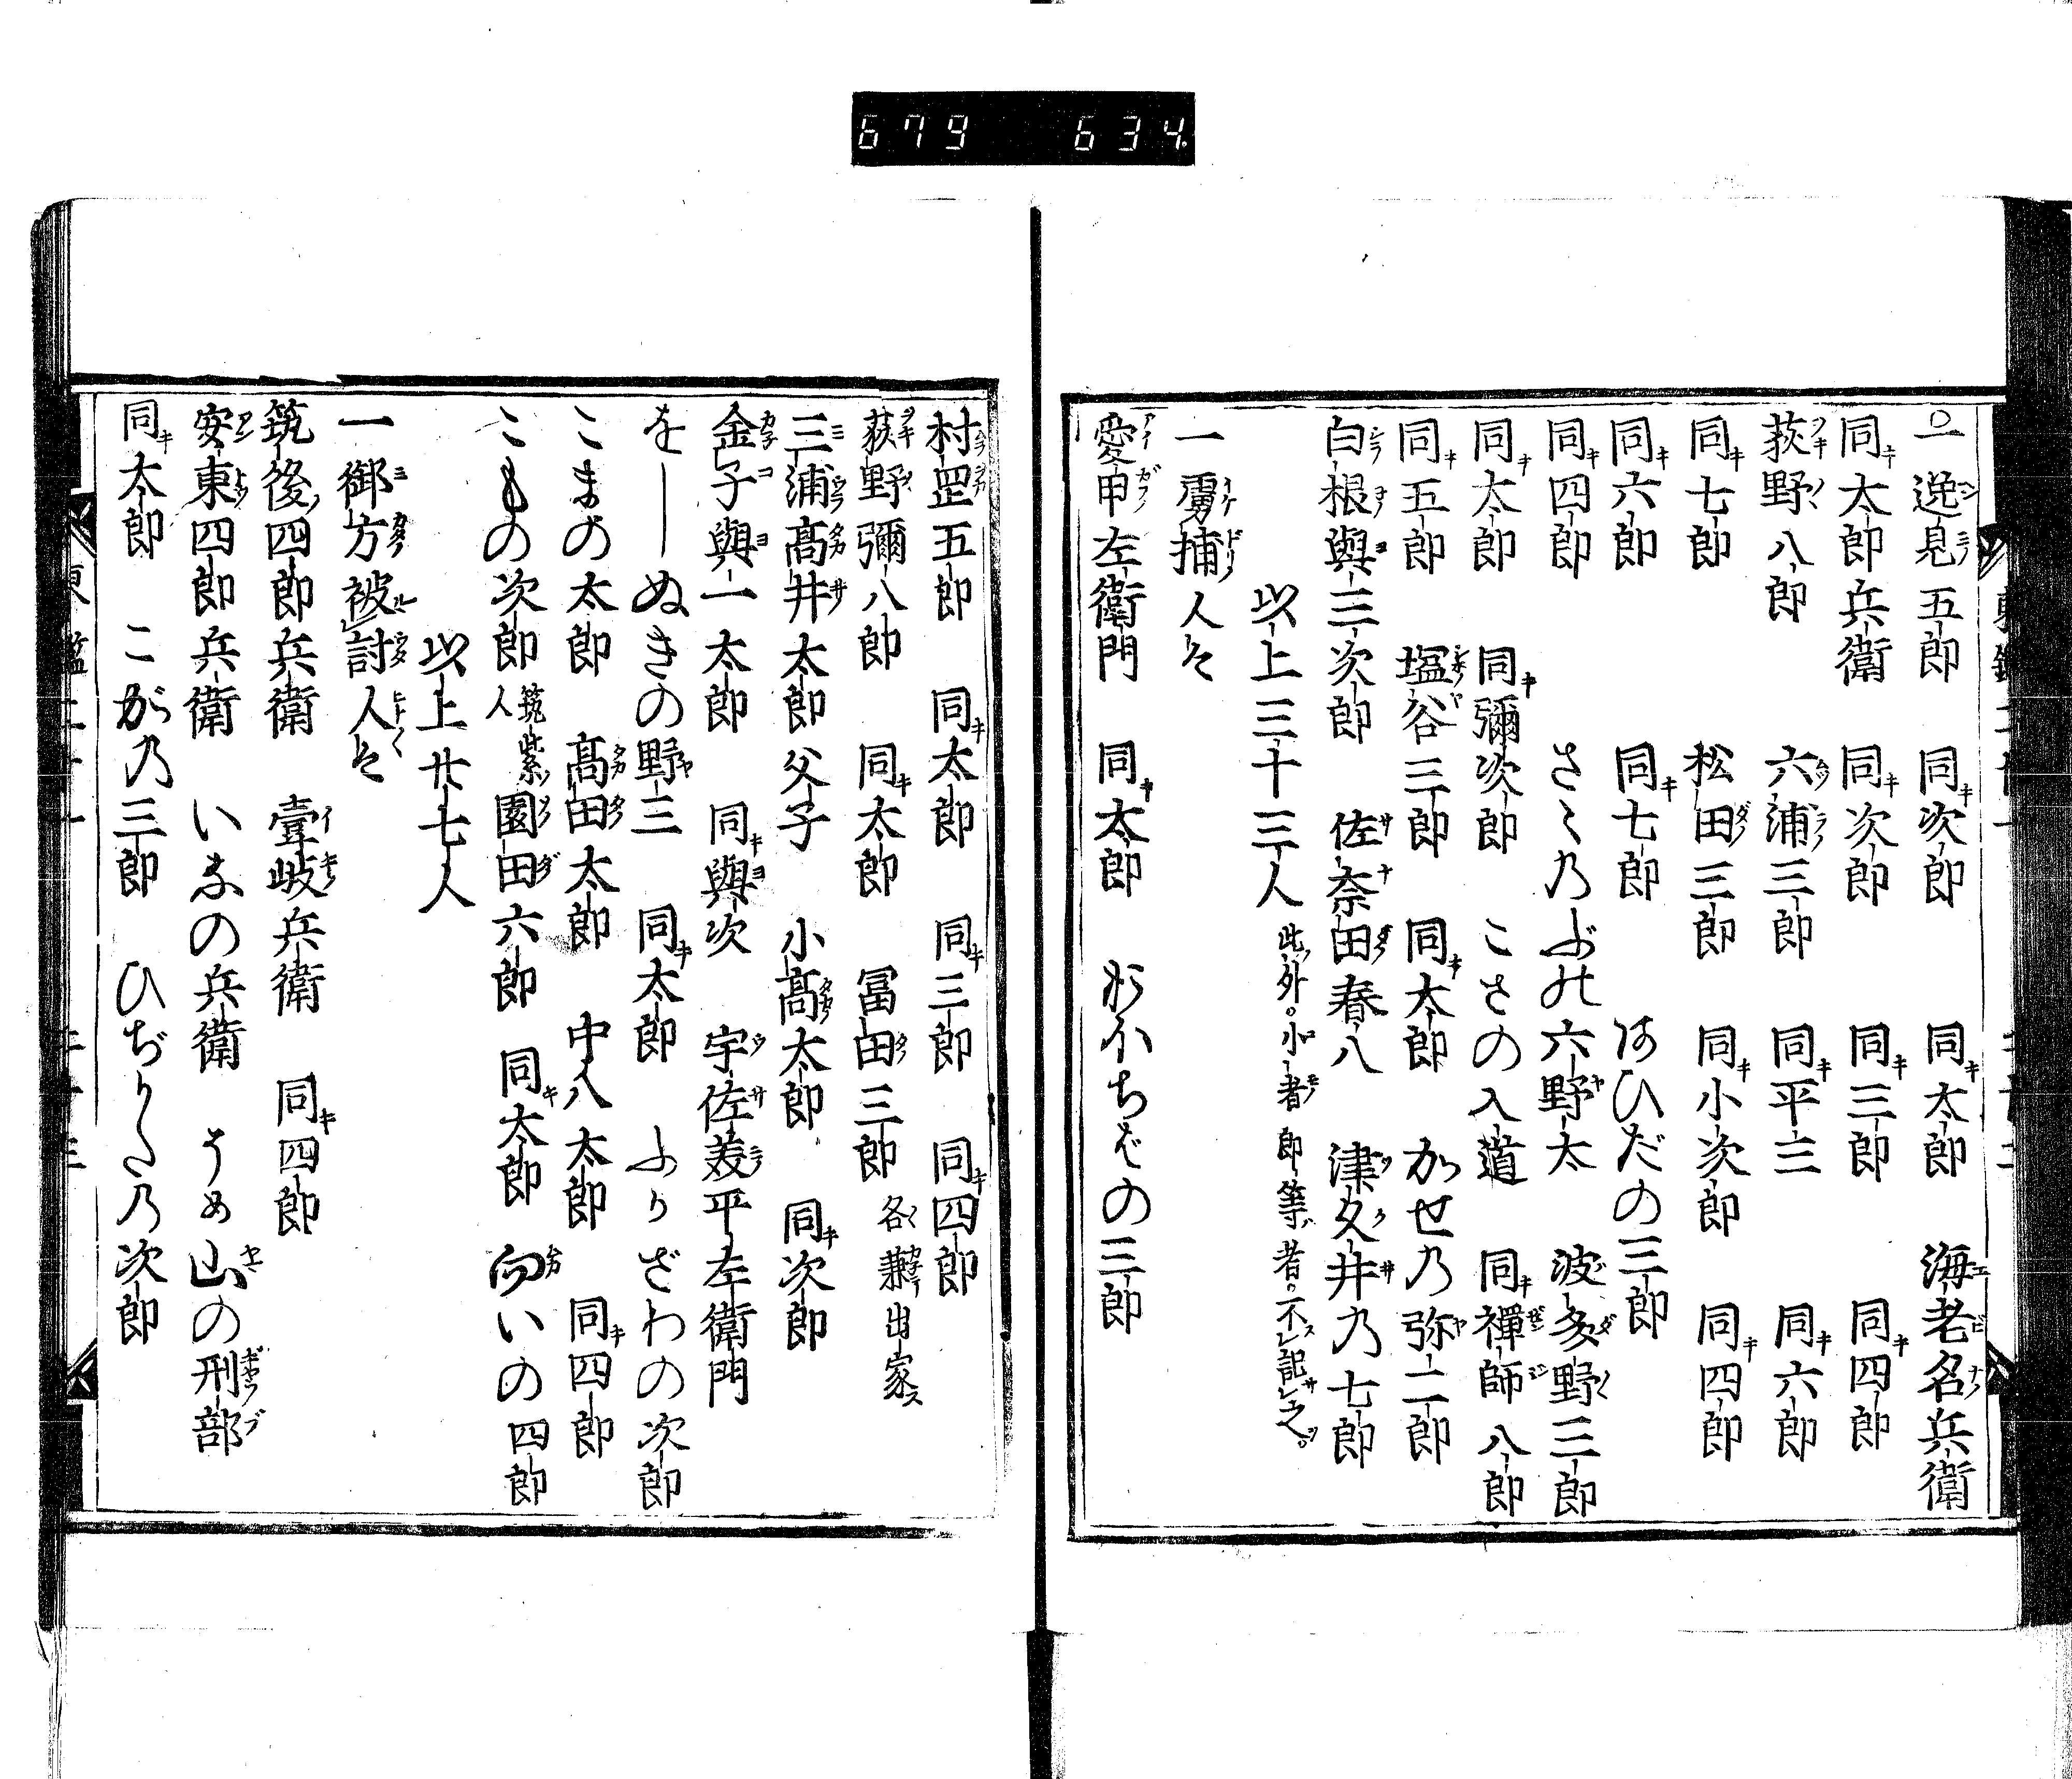 679 634
一 逸見五郎 同次郎 同太郎 海老名兵衛
同太郎兵衛 同次郎 同三郎 同四郎
荻野八郎 六浦三郎 同平三 同六郎
同七郎 松田三郎 同小次郎 同四郎
同六郎 同七郎 あひだの三郎
同四郎 さゝ乃ぶの六野太 波多野三郎
同太郎 同彌次郎 こさの入道 同禪師八郎
同五郎 塩谷三郎 同太郎 かせ乃弥二郎
白根與三次郎 佐奈田春八 津久井乃七郎
以上三十三人 此外。小者郎等者。不記之。
一虜捕人々
愛甲左衛門 同太郎 おほちはの三郎
村罡五郎 同太郎 同三郎 同四郎
荻野彌八郎 同太郎 冨田三郎 各兼出家
三浦髙井太郎父子 小髙太郎 同次郎
金子與一太郎 同與次 宇佐美平左衛門
をしぬきの野三 同太郎 ふりざわの次郎
こまの太郎 髙田太郎 中八太郎 同四郎
こもの次郎 筑紫人 園田六郎 同太郎 向いの四郎
以上廿七人
一御方被討人々
筑後四郎兵衛 壹岐兵衛 同四郎
安東四郎兵衛 いなの兵衛 うめ山の刑部
同太郎 こが乃三郎 ひぢかた乃次郎